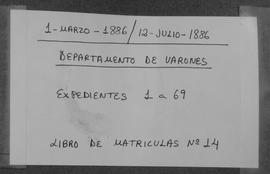 1-MARZO-1886/12-JULIO-1886
DEPARTAMENTO DE VARONES
EXPEDIENTES 1 a 69
LIBRO DE MATRICULAS Nº 14